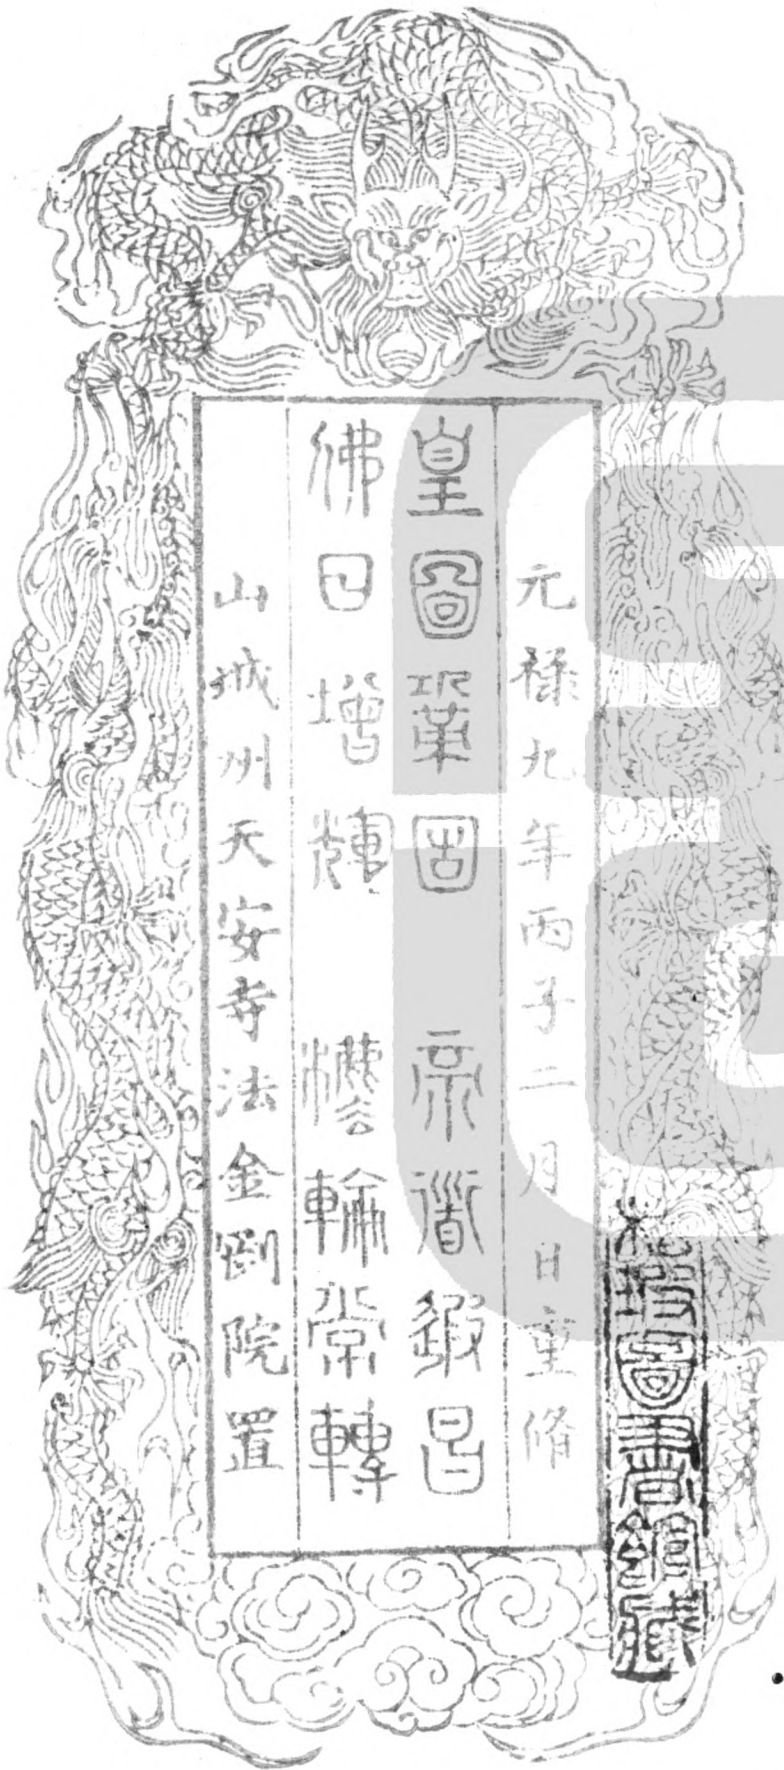 元祿九年丙子二月　日重脩
皇圖鞏固　帝道遐昌
佛日增輝　法輪常轉
山城州天安寺法金剛院置
松坡圖書館藏